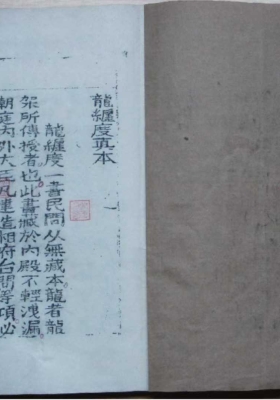 龍纏度真本
一
龍纏度一書民間从無藏本龍者龍
架所傳授者也此書藏於內殿不輕洩漏
朝庭內外大臣凡建造相府台閣等項必